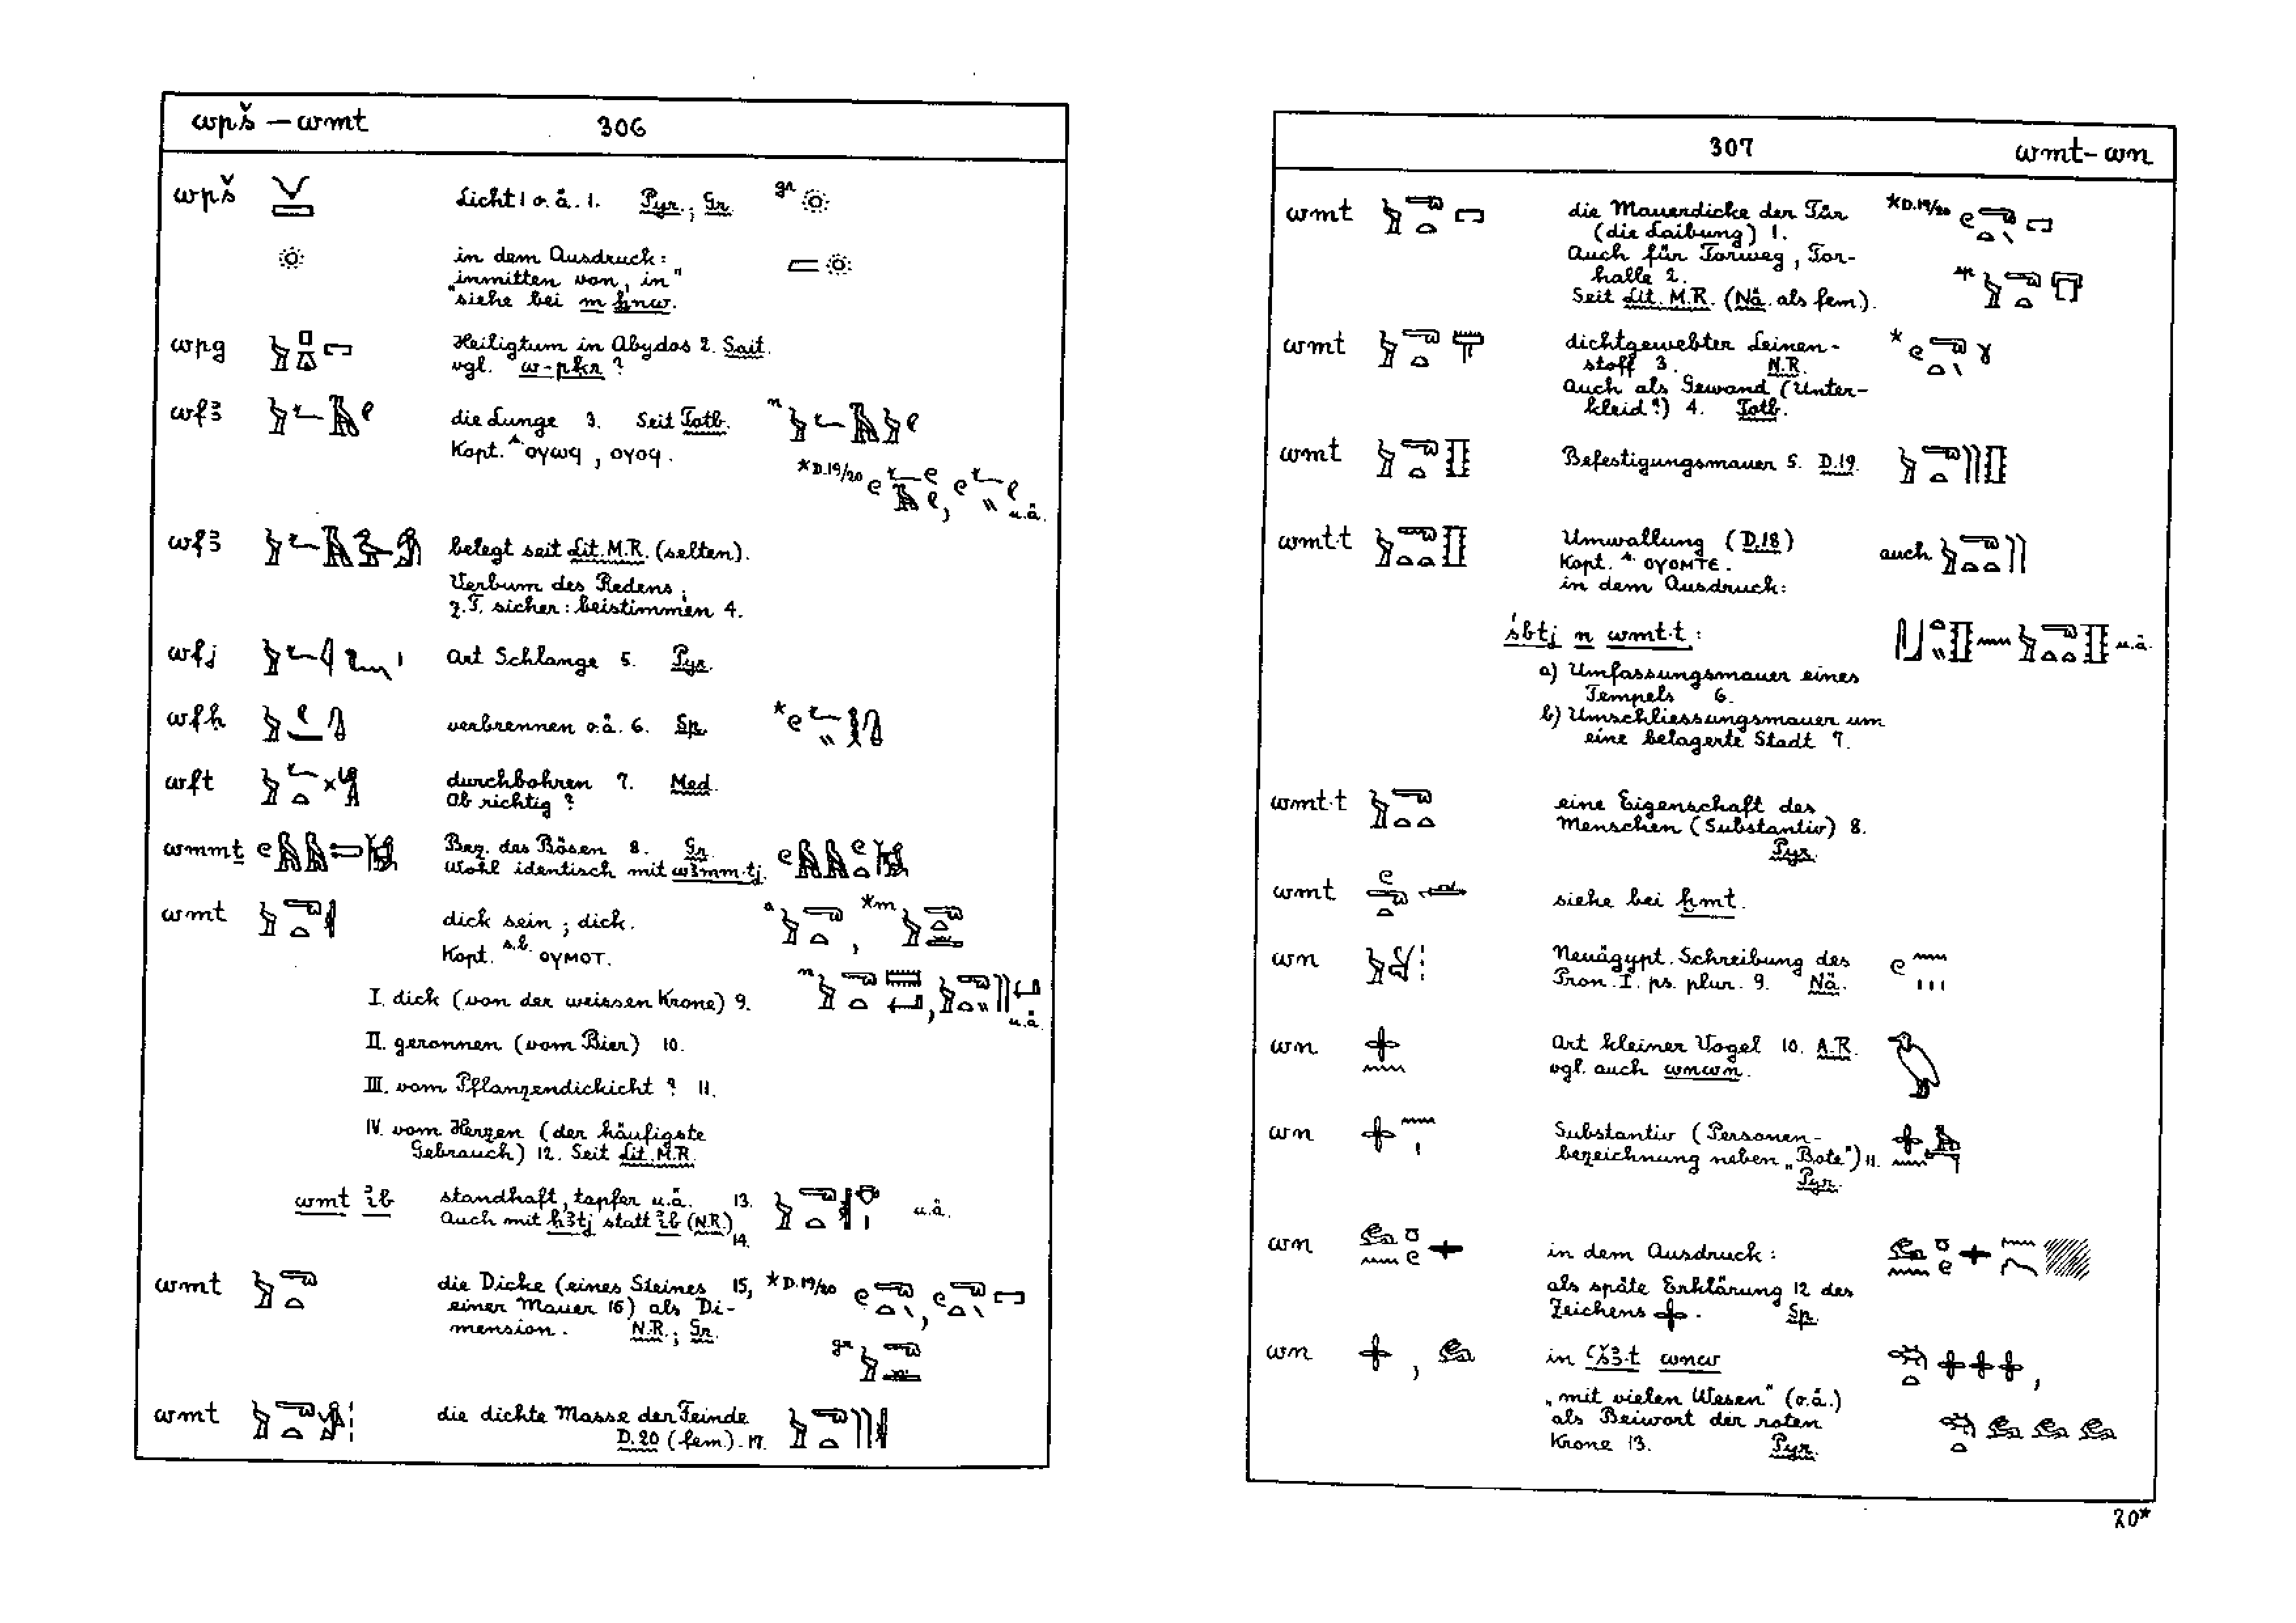 wpš – wmt 306
wpš Licht! o.ä. 1. Pyr.; Gr. gr
in dem Ausdruck:
„inmitten von, in"
siehe bei m ẖnw.
wpg Heiligtum in Abydos 2. Sait.
vgl. w-pḳr ?
wfꜣ die Lunge 3. Seit Totb. n
Kopt. ⲟⲩⲱϥ , ⲟⲩⲟϥ .
*D.19/20
u.ä.
wfꜣ belegt seit Lit. M.R. (selten).
Verbum des Redens ;
z.T. sicher : beistimmen 4.
wfj Art Schlange 5. Pyr.
wfh verbrennen o.ä. 6. Sp. *
wft durchbohren 7. Med.
Ob richtig ?
wmmṯ Bez. des Bösen 8. Gr.
Wohl identisch mit wꜣmm·tj.
wmt dick sein ; dick. a , *m
Kopt. s.b. ⲟⲩⲙⲟⲧ.
n
I. dick (von der weissen Krone) 9.
u.ä.
II. geronnen (vom Bier) 10.
III. vom Pflanzendickicht ? 11.
IV. vom Herzen (der häufigste
Gebrauch) 12. Seit Lit. M.R.
wmt ỉb standhaft, tapfer u.ä. 13. u.ä.
Auch mit ḥꜣtj statt ỉb (N.R.)
14.
wmt die Dicke (eines Steines 15, *D.19/20
einer Mauer 16) als Di-
mension. N.R. ; Gr.
gr
wmt die dichte Masse der Feinde
D.20 (fem.) . 17.
307 wmt – wn
wmt die Mauerdicke der Tür *D.19/20
(die Laibung) 1.
Auch für Torweg , Tor-
halle 2. sp
Seit Lit. M.R. (Nä. als fem.).
wmt dichtgewebter Leinen- *
stoff 3. N.R.
Auch als Gewand (Unter-
kleid ?) 4. Totb.
wmt Befestigungsmauer 5. D.19.
wmt·t Umwallung (D.18) auch
Kopt. ⲟⲩⲟⲙⲧⲉ .
in dem Ausdruck:
śbtj n wmt·t : u.ä.
a) Umfassungsmauer eines
Tempels 6.
b) Umschliessungsmauer um
eine belagerte Stadt 7.
wmt·t eine Eigenschaft des
Menschen (Substantiv) 8.
Pyr.
wmt siehe bei ḫmt .
wn Neuägypt. Schreibung des
Pron. I. ps. plur. 9. Nä.
wn Art kleiner Vogel 10. A.R.
vgl. auch wnwn .
wn Substantiv (Personen-
bezeichnung neben „Bote") 11.
Pyr.
wn in dem Ausdruck :
als späte Erklärung 12 des
Zeichens . Sp.
wn , in ꜥšꜣ·t wnw ,
„mit vielen Wesen" (o.ä.)
als Beiwort der roten
Krone 13. Pyr.
20*